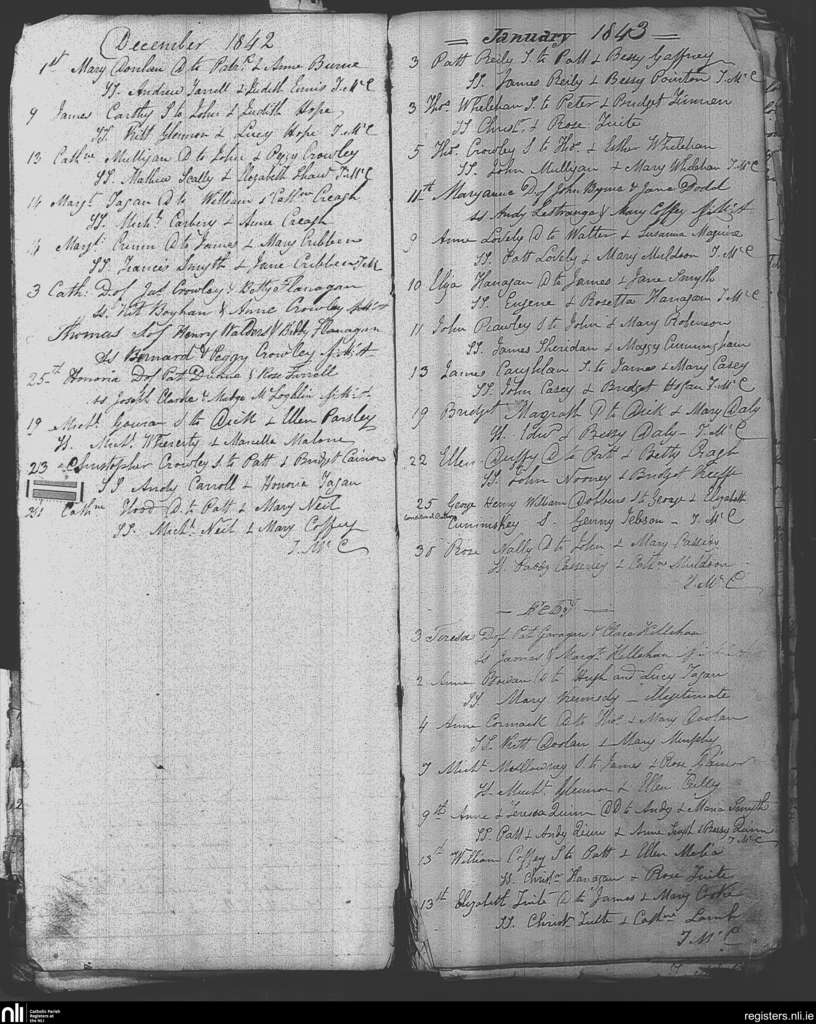 December 1842
1st Mary Donlan D to Patr. & Anne Burne
SS. Andrew Farrell & Judith Ennis T. McC
9 James Carthy S to John & Judith Hope
SS. Kitt Glennon & Lucy Hope T. McC
13 Cathne Mulligan D to John & Peggy Crowley
SS. Mathew Scally & Elizabeth Shaw T. McC
14 Margt. Fagan D to William & Cathne Creagh
SS. Michl. Carbery & Anne Creagh
14 Margt. D to James & Mary Cribben
SS. Francis Smyth & Jane Cribben T. McC
3 Cath: D of Jas. Crowley & Betty Flanagan
ss. Kitt Boyhan & Anne Crowley
Thomas S of Henry Walders & Biddy Flanagan
ss Bernard & Peggy Crowley
25th Honoria D of Pat Duane & Rose Farrell
ss Joseph Clarke & Madge McLoghlin
19 Michl. S to Dick & Ellen Parsley
SS. Michl. & Mariella Malone
23 Christopher Crowley S. to Patt & Bridget Cannon
SS Andy Carroll & Honoria Fagan
Cathne Flood D to Patt & Mary Neil
SS. Michl. Neil & Mary Coffey
T. McC
January 1843
3 Patt Reily S. to Patt & Bessy Gaffney
SS. James Reily & Bessy Pointon T. McC
3 Thos. Whelehan S. to Peter & Bridget
SS Christ. & Rose Tuite
5 Thos. Crowley S to Thos. & Esther Whelehan
SS. John Mulligan & Mary Whelehan T. McC
11th Maryanne D of John Byrne & Jane Dodd
ss Andy Lestrange & Mary Coffey
9 Anne Lovely D to Walter & Susanna Maguire
SS. Patt Lovely & Mary Muldoon T. McC
10 Eliza Flanagan D to James & Jane Smyth
SS. Eugene & Rosetta Flanagan T. McC
11 John Rawley S to John & Mary Robinson
SS. James Sheridan & Maggy Cunningham
13 James Caughlan S. to James & Mary Casey
SS. John Casey & Bridget Hogan T. McC
19 Bridget Magrath D to Dick & Mary Daly
SS. Edwd. & Bessy Daly T. McC
22 Ellen Duffy D to Patt & Betty
SS. John Nooney & Bridget Keeffe
25 George Henry William Dobbins S to George & Elizabeth
Cuminskey S. Genny Jebson - T. McC
30 Rose Nally D to John & Mary
SS. Casserley & Cathne Muldoon
T. McC
3 Teresa D of Pat Gavagan & Clare Killehan
ss James & Margt. Killehan
2 Anne D to Hugh and Lucy Fagan
SS Mary Kennedy - Illegitimate
4 Anne Cormack D to Thos. & Mary Doolan
SS. Kitt Doolan & Mary Murphy
7 Michl. S. to James & Rose
SS. Michl. Glennon & Ellen Reilly
9th Anne & Teresa Quinn DD to Andy & Maria Smyth
SS. Patt & Andy Quinn & Anne Smyth & Bessy Quinn
T. McC
13th William Coffey S to Patt & Ellen Melia
SS Christn. Flanagan & Rose Tuite
13th Elizabeth Tuite D to James & Mary Cooke
SS. Christ. Tuite & Cathne Lamb
T. McC
nli
Catholic Parish
Registers at
the NLI
registers.nli.ie